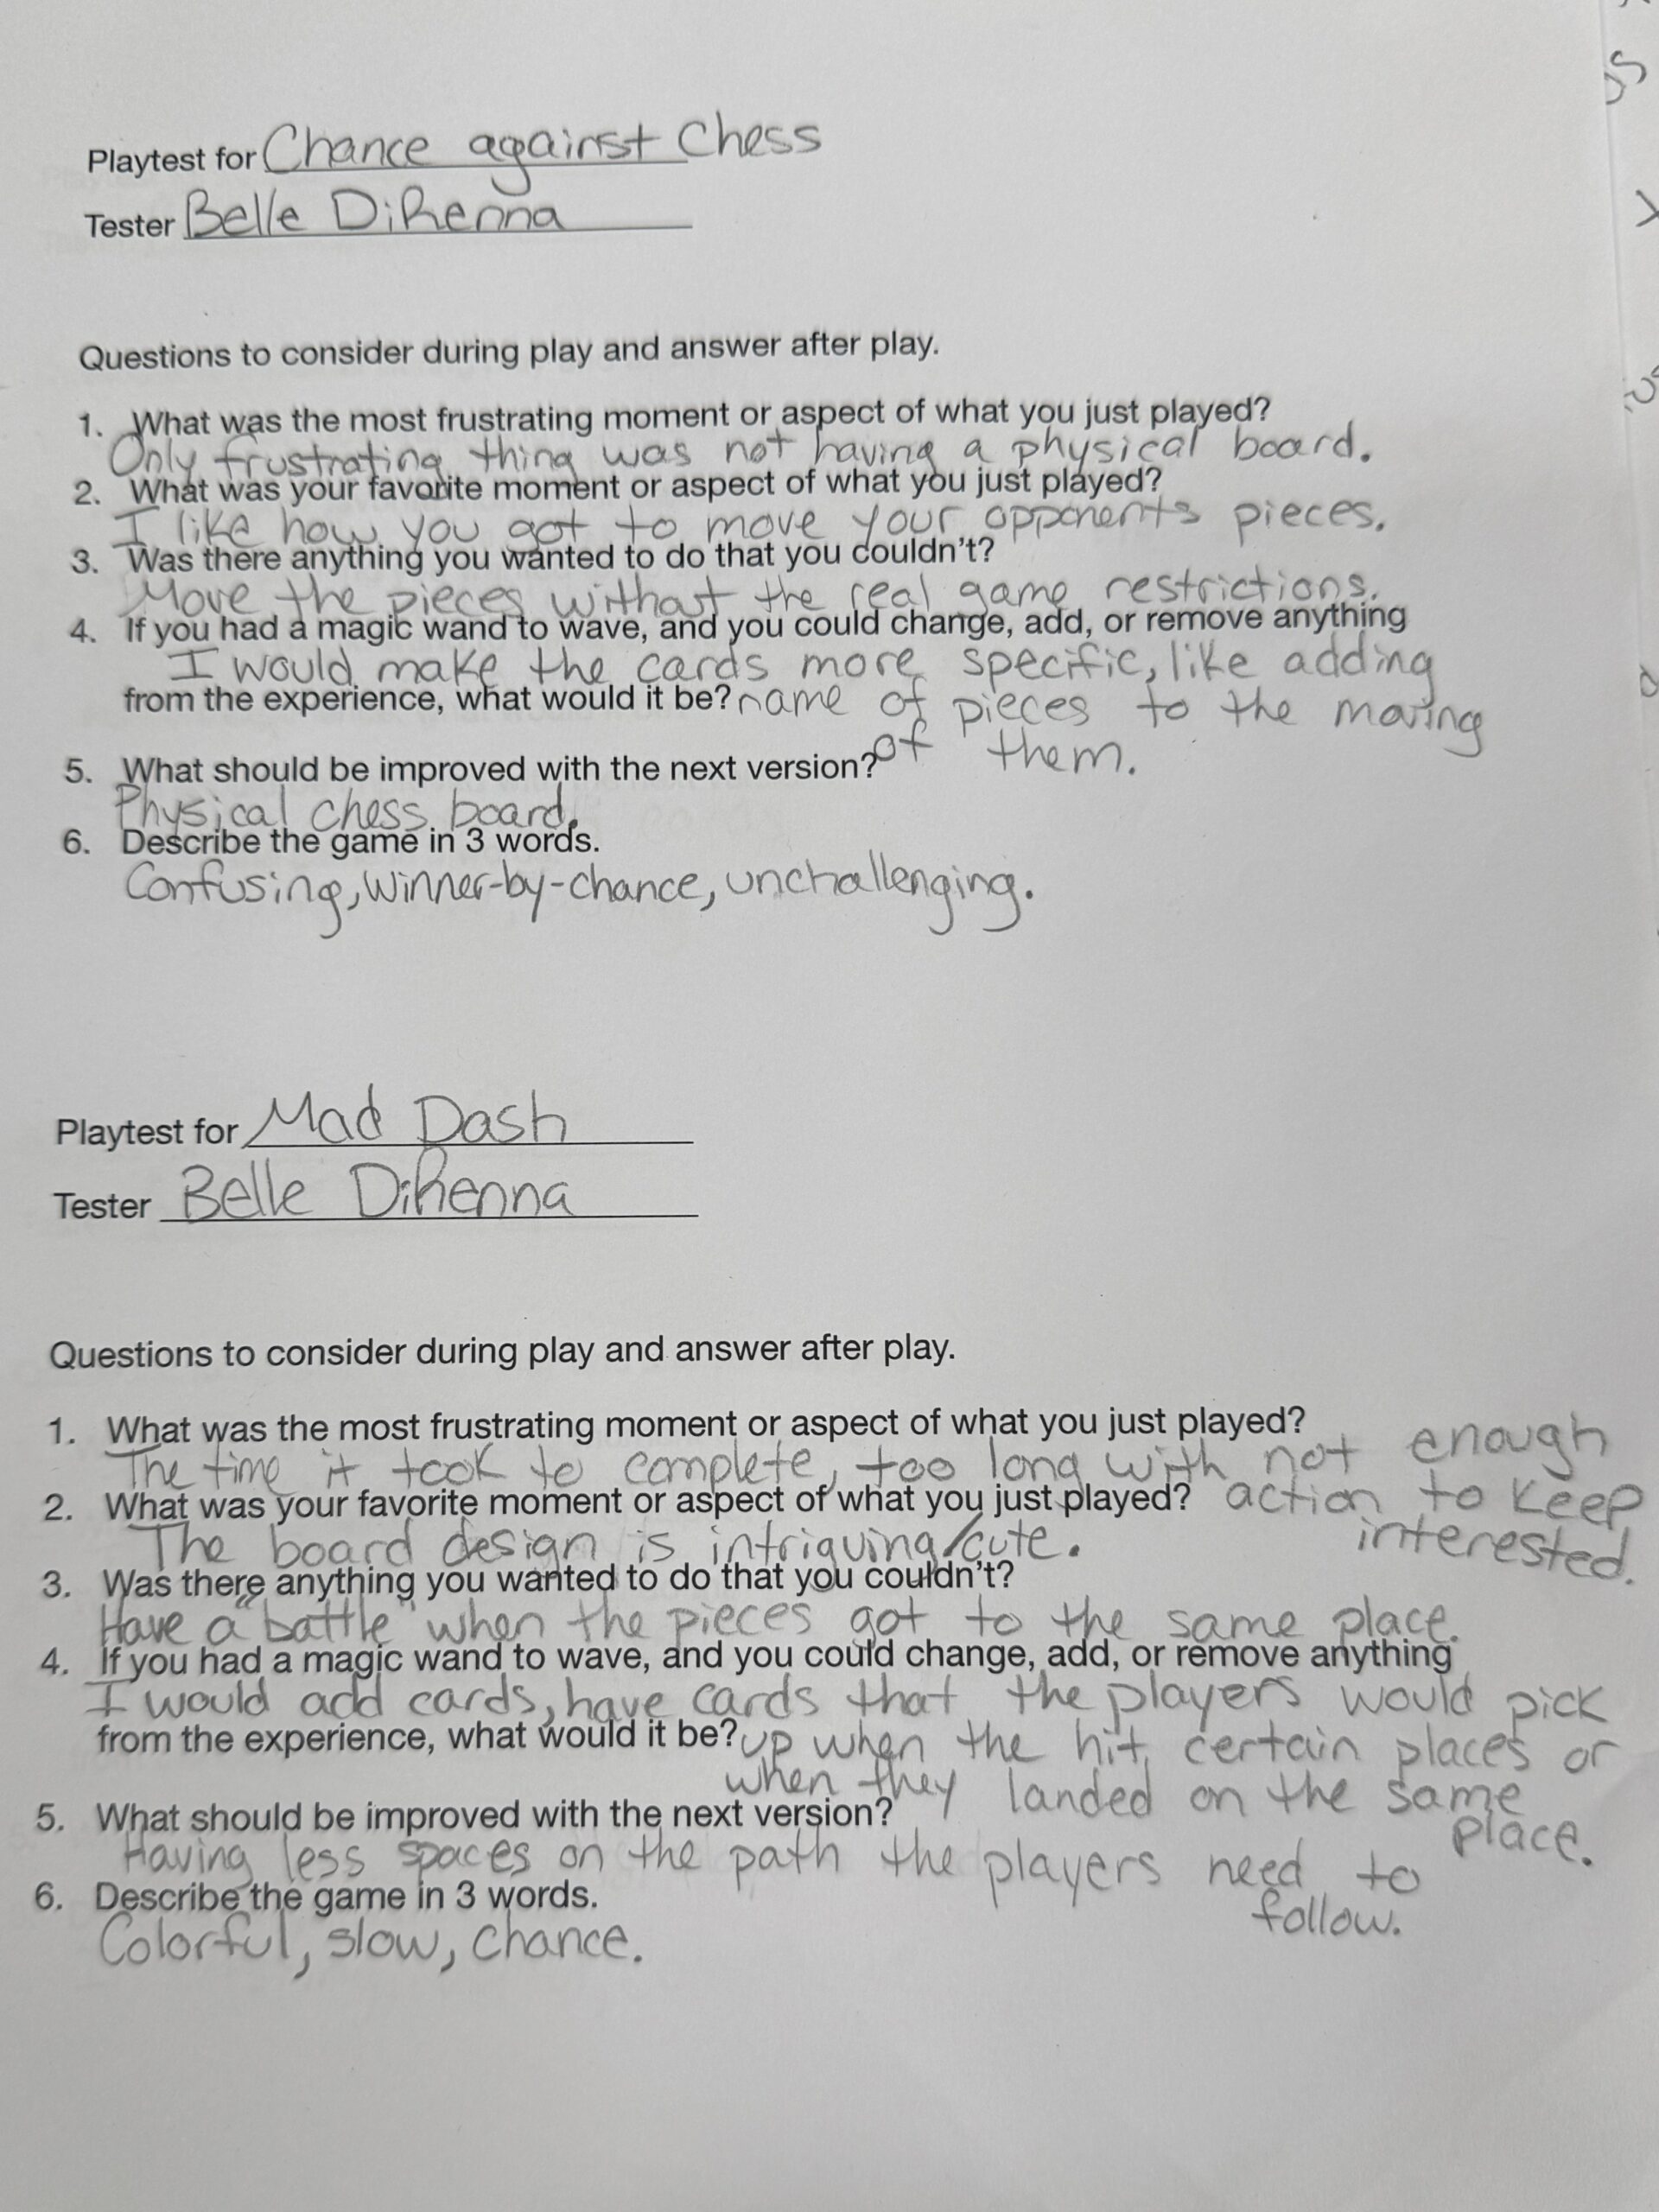 Playtest for Chance against Chess
Tester Belle DiRenna
Questions to consider during play and answer after play.
1. What was the most frustrating moment or aspect of what you just played?
Only frustrating thing was not having a physical board.
2. What was your favorite moment or aspect of what you just played?
I like how you got to move your opponents pieces.
3. Was there anything you wanted to do that you couldn't?
Move the pieces without the real game restrictions.
4. If you had a magic wand to wave, and you could change, add, or remove anything
I would make the cards more specific, like adding
from the experience, what would it be? name of pieces to the moving
of them.
5. What should be improved with the next version?
Physical chess board.
6. Describe the game in 3 words.
Confusing, winner-by-chance, unchallenging.
Playtest for Mad Dash
Tester Belle DiRenna
Questions to consider during play and answer after play.
1. What was the most frustrating moment or aspect of what you just played?
The time it took to complete, too long with not enough
2. What was your favorite moment or aspect of what you just played? action to keep
interested.
The board design is intriguing/cute.
3. Was there anything you wanted to do that you couldn't?
Have a "battle" when the pieces got to the same place.
4. If you had a magic wand to wave, and you could change, add, or remove anything
I would add cards, have cards that the players would pick
from the experience, what would it be? up when the hit certain places or
when they landed on the same
place.
5. What should be improved with the next version?
Having less spaces on the path the players need to
follow.
6. Describe the game in 3 words.
Colorful, slow, chance.